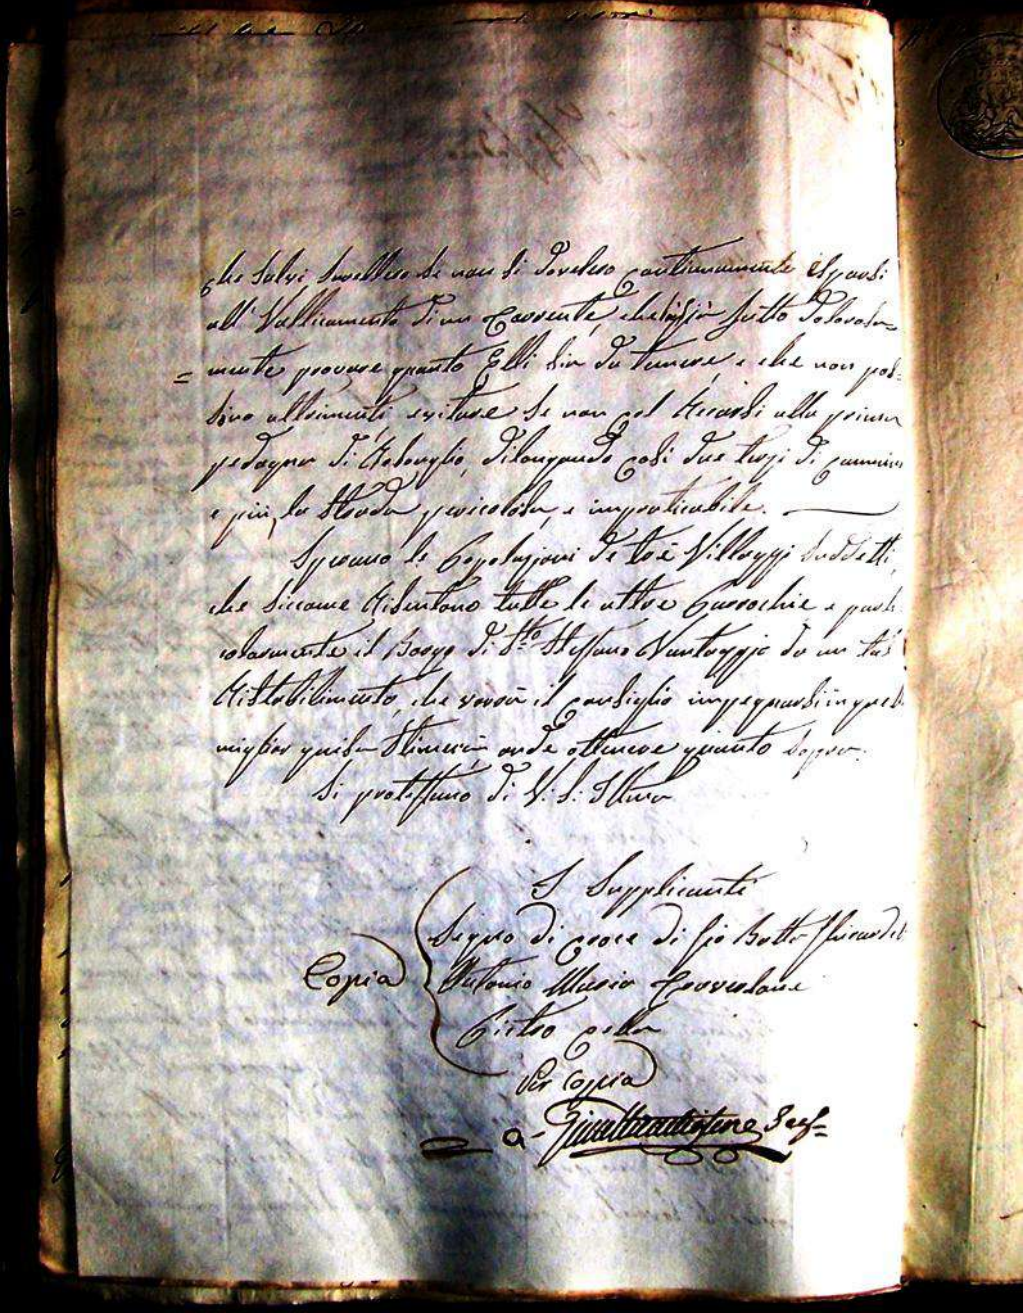 che salvi sarebbero se non si dovesse continuamente esporsi
all' Vallicamento di un Torrente, che fà già tutto dolorosa-
= mente provare quanto Essi sia da temere, e che non pos-
sino altrimenti evitare se non col recarsi alla prima
pedagna di dilongando così due terzi di cammino
e più, la strada pericolosa, e impraticabile.
Sperano le Popolazioni de tre Villaggi suddetti,
che siccome risentano tutte le altre Parrochie e parti-
colarmente il Borgo di S.to Steffano Vantaggio da un tal
ristabilimento, che vorrà il Consiglio impegnarsi in quel
miglior guisa stimerà onde ottenere quanto sopra.
Si protestano di V. S. Ill.ma
I Supplicanti
Segno di croce di Gio Batta
Copia Antonio Maria
Pietro Cella
Per Copia
Seg.=